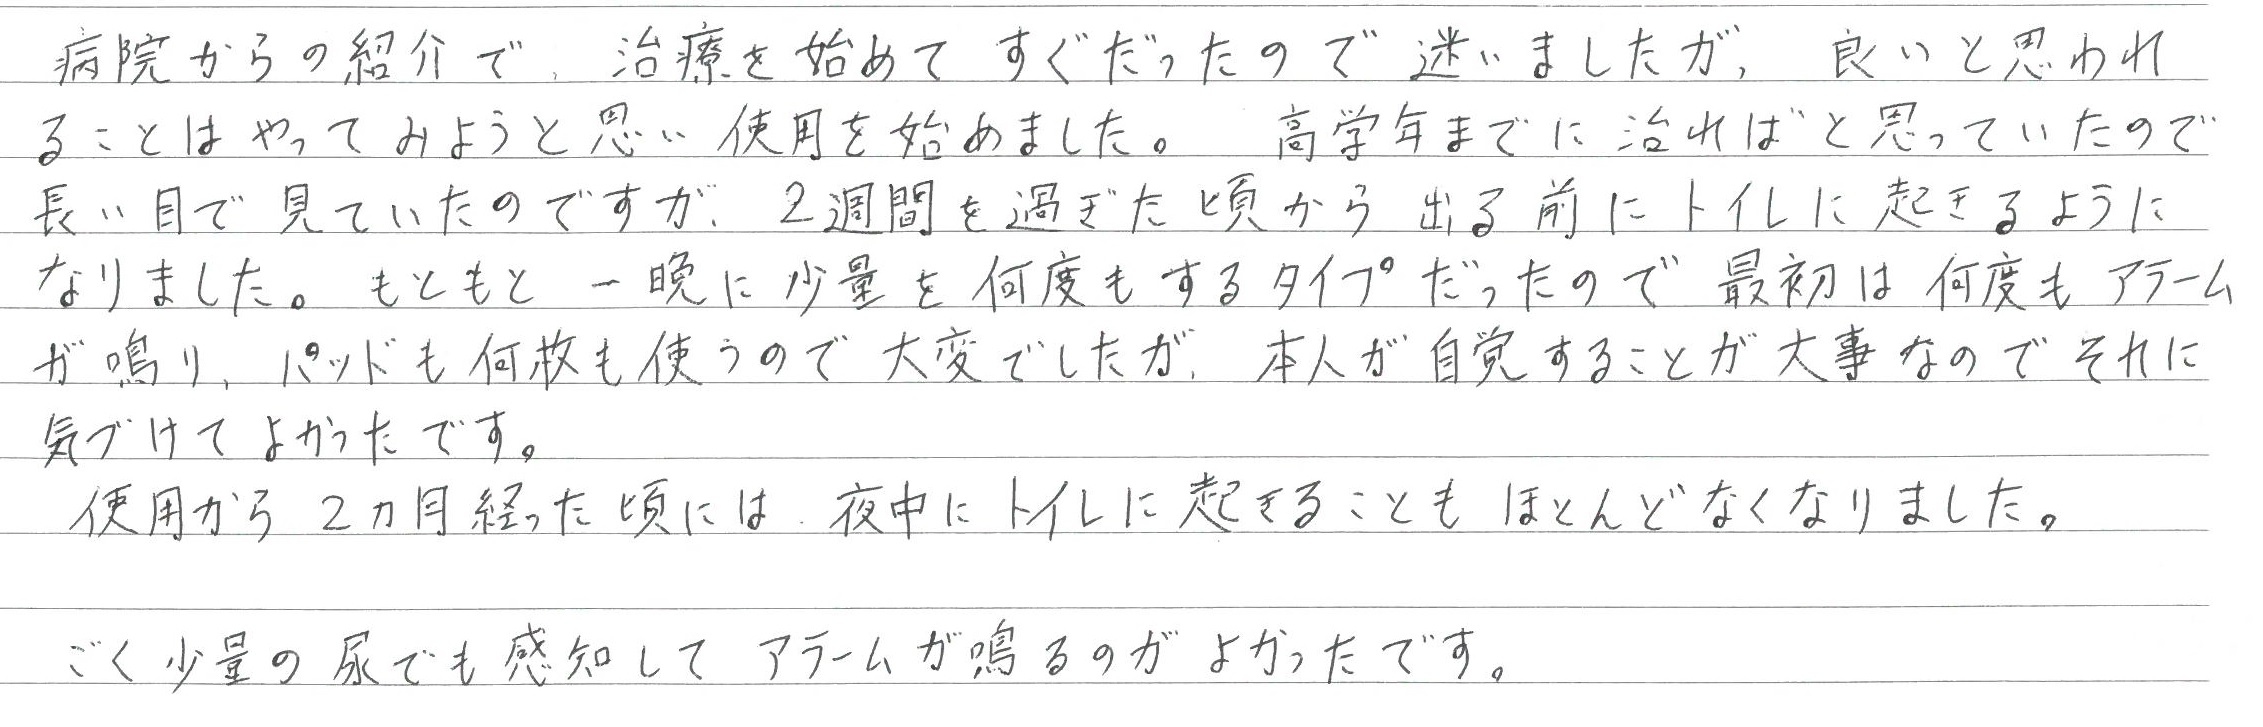 病院からの紹介で、治療を始めてすぐだったので迷いましたが、良いと思われ
ることはやってみようと思い使用を始めました。高学年までに治ればと思っていたので
長い目で見ていたのですが、2週間を過ぎた頃から出る前にトイレに起きるように
なりました。もともと一晩に少量を何度もするタイプだったので最初は何度もアラーム
が鳴り、パッドも何枚も使うので大変でしたが、本人が自覚することが大事なのでそれに
気づけてよかったです。
使用から2カ月経った頃には、夜中にトイレに起きることもほとんどなくなりました。
ごく少量の尿でも感知してアラームが鳴るのがよかったです。